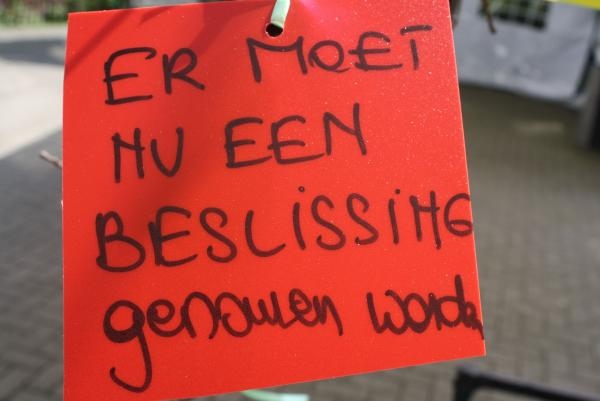 ER MOET
NU EEN
BESLISSING
genomen worden